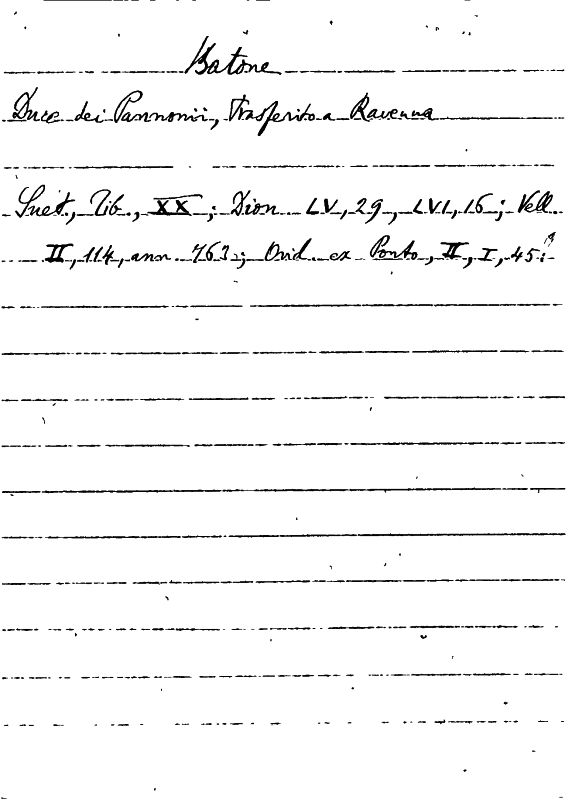 Batone
Duce dei Pannonii, Trasferito a Ravenna
Suet., Tib., XX; Dion LV, 29, LVI, 16; Vell.
II, 114, ann. 763; Ovid. ex Ponto, II, I, 45.